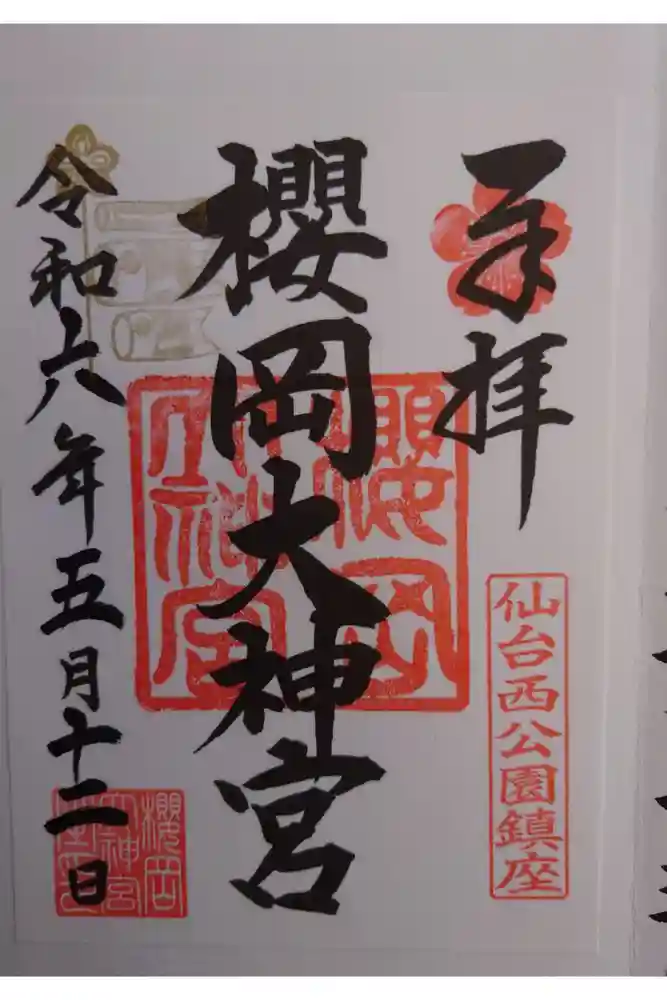 奉拝
仙台西公園鎮座
櫻岡大神宮
櫻岡大神宮
令和六年五月十二日